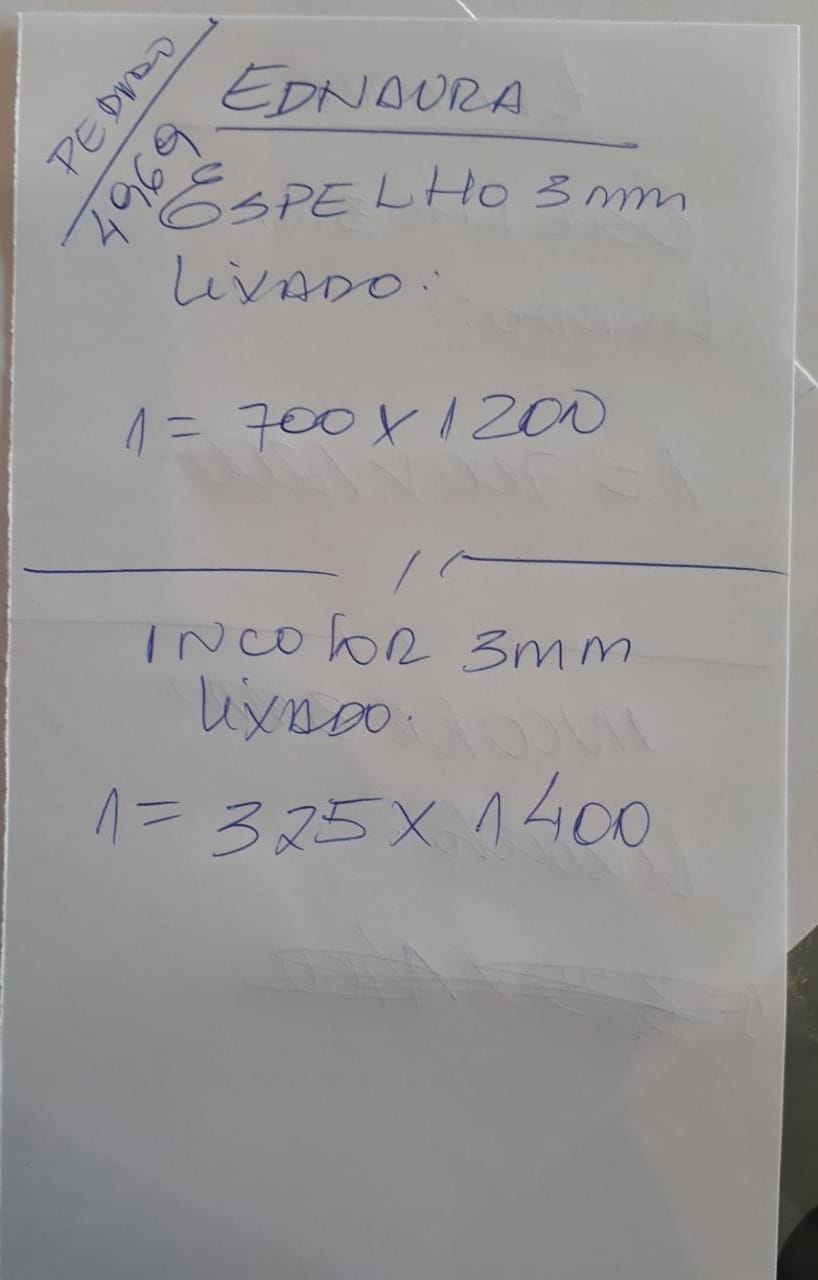 PEDIDO
4969
EDNAURA
ESPELHO 3mm
LiXADO:
1= 700 X 1200
INCOLOR 3mm
LiXADO.
1= 325 X 1400